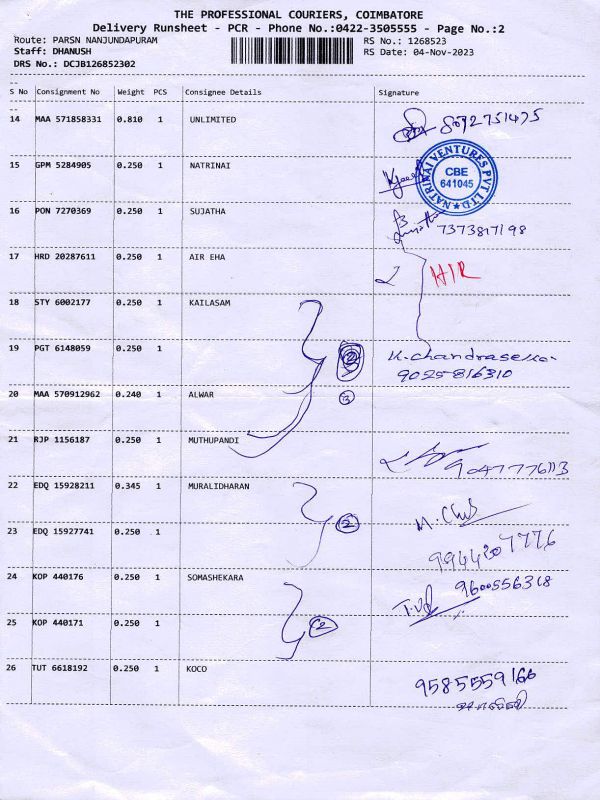 THE PROFESSIONAL COURIERS, COIMBATORE
Delivery Runsheet - PCR - Phone No.:0422-3505555 - Page No.:2
Route: PARSN NANJUNDAPURAM RS No.: 1268523
Staff: DHANUSH RS Date: 04-Nov-2023
DRS No.: DCJB126852302
S No Consignment No Weight PCS Consignee Details Signature
14 MAA 571858331 0.810 1 UNLIMITED 8072751475
15 GPM 5284905 0.250 1 NATRINAI
NATRINAI VENTURES PVT LTD
CBE
641045
16 PON 7270369 0.250 1 SUJATHA
7373817198
17 HRD 20287611 0.250 1 AIR EHA HIR
18 STY 6002177 0.250 1 KAILASAM
19 PGT 6148059 0.250 1 2 K.chandraseka.
9025816310
20 MAA 570912962 0.240 1 ALWAR 3
21 RJP 1156187 0.250 1 MUTHUPANDI
9047776113
22 EDQ 15928211 0.345 1 MURALIDHARAN
23 EDQ 15927741 0.250 1 2
9944207776
24 KOP 440176 0.250 1 SOMASHEKARA 9600556318
25 KOP 440171 0.250 1 2
26 TUT 6618192 0.250 1 KOCO 9585559166